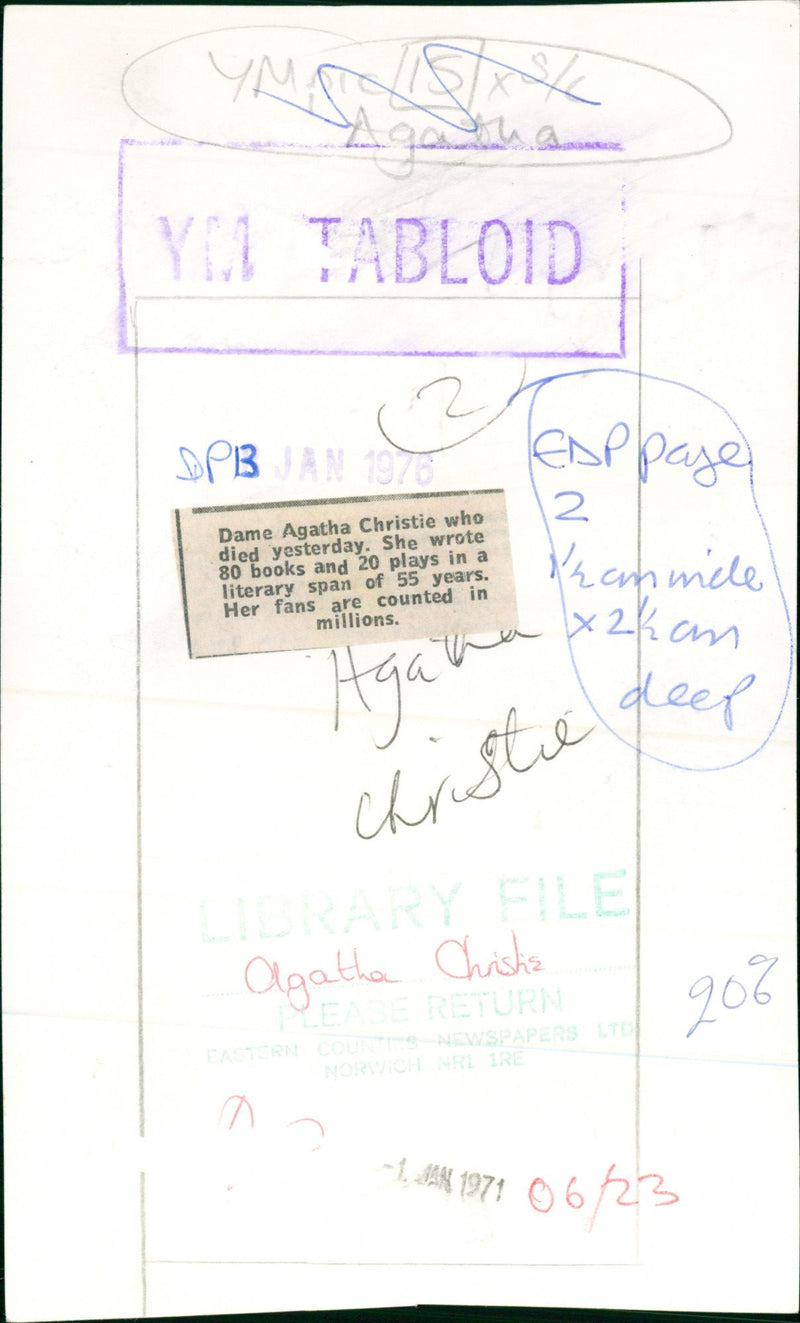 YM pic 15 x S/C
Agatha
YM TABLOID
2
DPB
13 JAN 1976
EDP page
2
1½ cm wide
x 2½ cm
deep
Dame Agatha Christie who
died yesterday. She wrote
80 books and 20 plays in a
literary span of 55 years.
Her fans are counted in
millions.
Agatha
Christie
LIBRARY FILE
Agatha Christie
PLEASE RETURN
EASTERN COUNTIES NEWSPAPERS LTD
NORWICH NR1 1RE
-1 JAN 1971
06/23